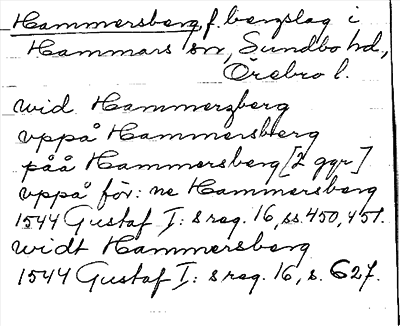 Hammersberg, f. bergslag i
Hammars sn, Sundbo hd,
Örebro l.
wid Hammerzberg
vppå Hammersberg
påå Hammersberg [2 ggr]
vppå för: ne Hammersberg
1544 Gustaf I: s reg. 16, ss. 450, 451.
widt Hammersberg
1544 Gustaf I: s reg. 16, s. 627.